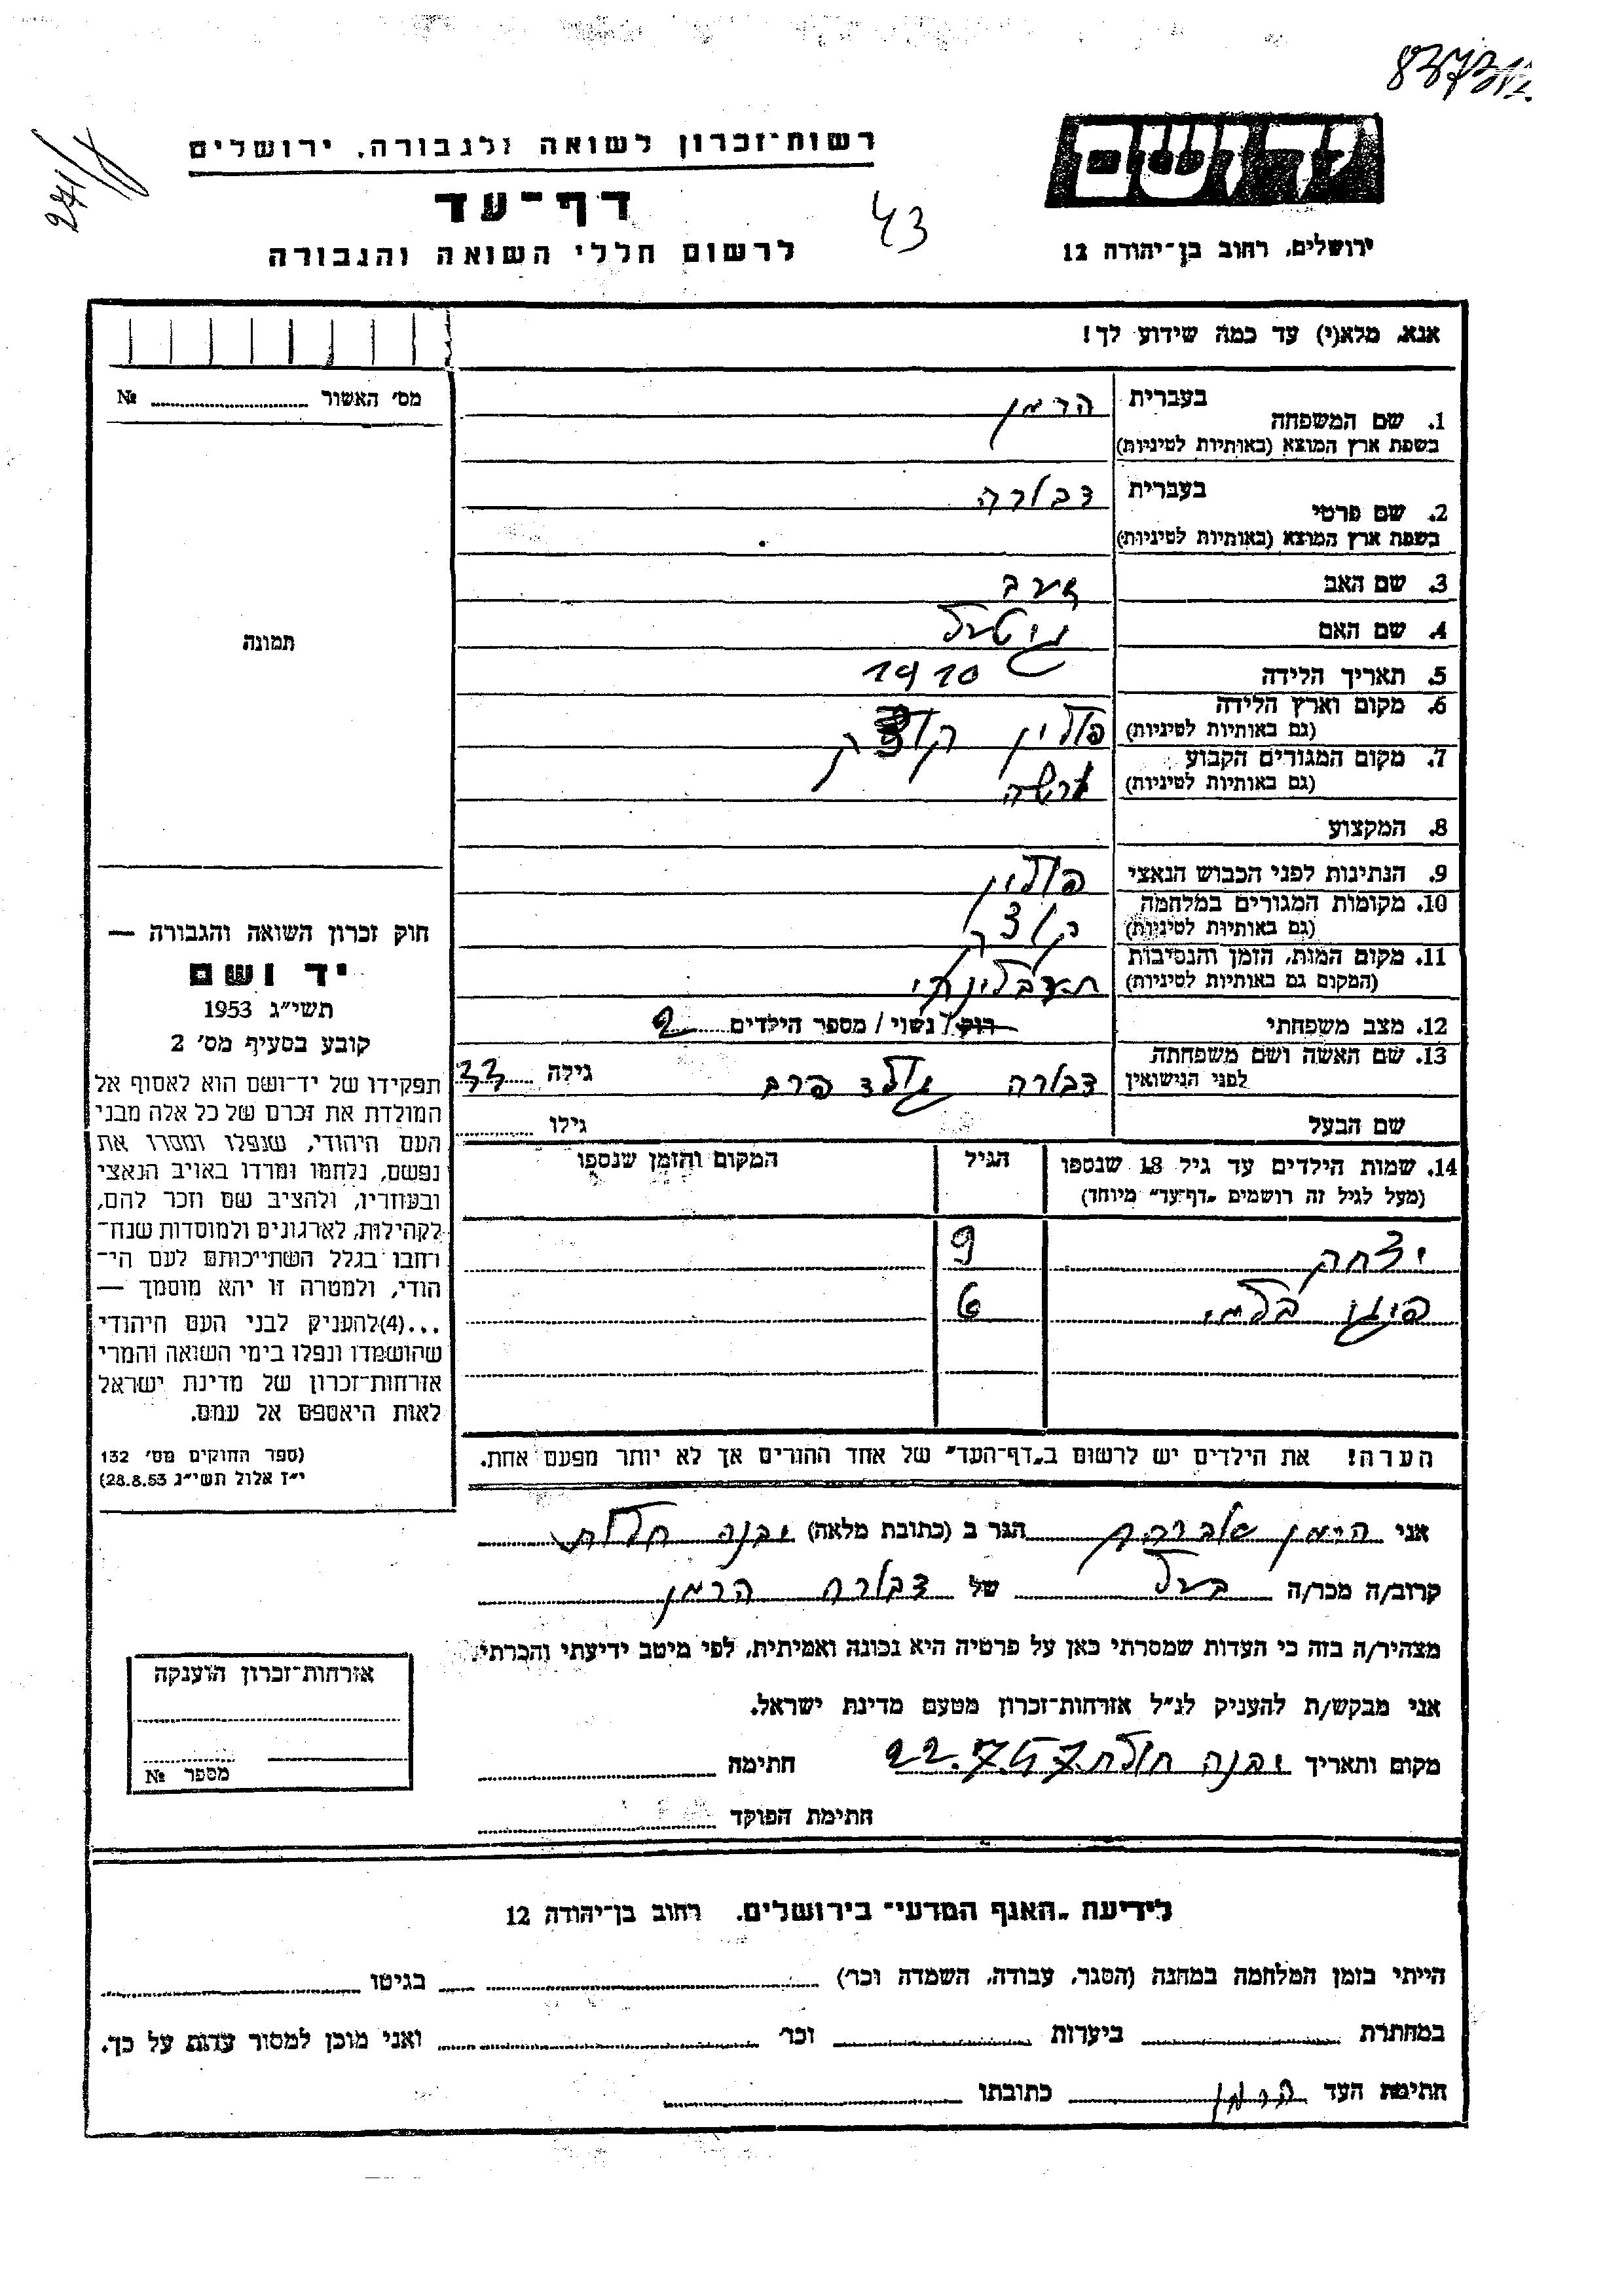 רשות־זכרון לשואה ולגבורה, ירושלים
דף־עד
לרשום חללי השואה והגבורה
43
271/
יד ושם
ירושלים, רחוב בן־יהודה 12
אנא, מלא(י) עד כמה שידוע לך!
מס׳ האשור № 
1. שם המשפחה
בעברית הרמן
בשפת ארץ המוצא (באותיות לטיניות)
2. שם פרטי
בעברית דבורה
בשפת ארץ המוצא (באותיות לטיניות)
3. שם האב
4. שם האם גיטל
5. תאריך הלידה 1910
6. מקום וארץ הלידה
(גם באותיות לטיניות) פולין קוצק
7. מקום המגורים הקבוע
(גם באותיות לטיניות) ורשה
8. המקצוע
9. הנתינות לפני הכבוש הנאצי פולין
10. מקומות המגורים במלחמה
(גם באותיות לטיניות) קוצק
11. מקום המות, הזמן והנסיבות
(המקום גם באותיות לטיניות) תרבלינקי
12. מצב משפחתי רוק/ נשוי / מספר הילדים 2
13. שם האשה ושם משפחתה
לפני הנישואין דבורה גולד פרב גילה 33
שם הבעל גילו
14. שמות הילדים עד גיל 18 שנספו
(מעל לגיל זה רושמים „דף־עד” מיוחד)
הגיל
המקום והזמן שנספו
יצחק 9
6
הערה! את הילדים יש לרשום ב„דף־העד” של אחד ההורים אך לא יותר מפעם אחת.
תמונה
חוק זכרון השואה והגבורה —
יד ושם
תשי״ג 1953
קובע בסעיף מס׳ 2
תפקידו של יד־ושם הוא לאסוף אל
המולדת את זכרם של כל אלה מבני
העם היהודי, שנפלו ומסרו את
נפשם, נלחמו ומרדו באויב הנאצי
ובעוזריו, ולהציב שם וזכר להם,
לקהילות, לארגונים ולמוסדות שנח־
רחבו בגלל השתייכותם לעם הי־
הודי, ולמטרה זו יהא מוסמך —
...(4)להעניק לבני העם היהודי
שהושמדו ונפלו בימי השואה והמרי
אזרחות־זכרון של מדינת ישראל
לאות היאספם אל עמם.
(ספר החוקים מס׳ 132
י״ז אלול תשי״ג 28.8.53)
אני הרמן אברהם הגר ב (כתובת מלאה) יבנה
קרוב/ה מכר/ה בעל של דבורה הרמן
מצהיר/ה בזה כי העדות שמסרתי כאן על פרטיה היא נכונה ואמיתית, לפי מיטב ידיעתי והכרתי.
אני מבקש/ת להעניק לנ״ל אזרחות־זכרון מטעם מדינת ישראל.
מקום ותאריך יבנה 22.7.57 חתימה
חתימת הפוקד
אזרחות־זכרון הוענקה
מספר №
לידיעת „האגף המדעי” בירושלים, רחוב בן־יהודה 12
הייתי בזמן המלחמה במחנה (הסגר, עבודה, השמדה וכר) בגיטו
במחתרת ביערות וכר ואני מוכן למסור עדות על כך.
חתימת העד הרמן כתובתו